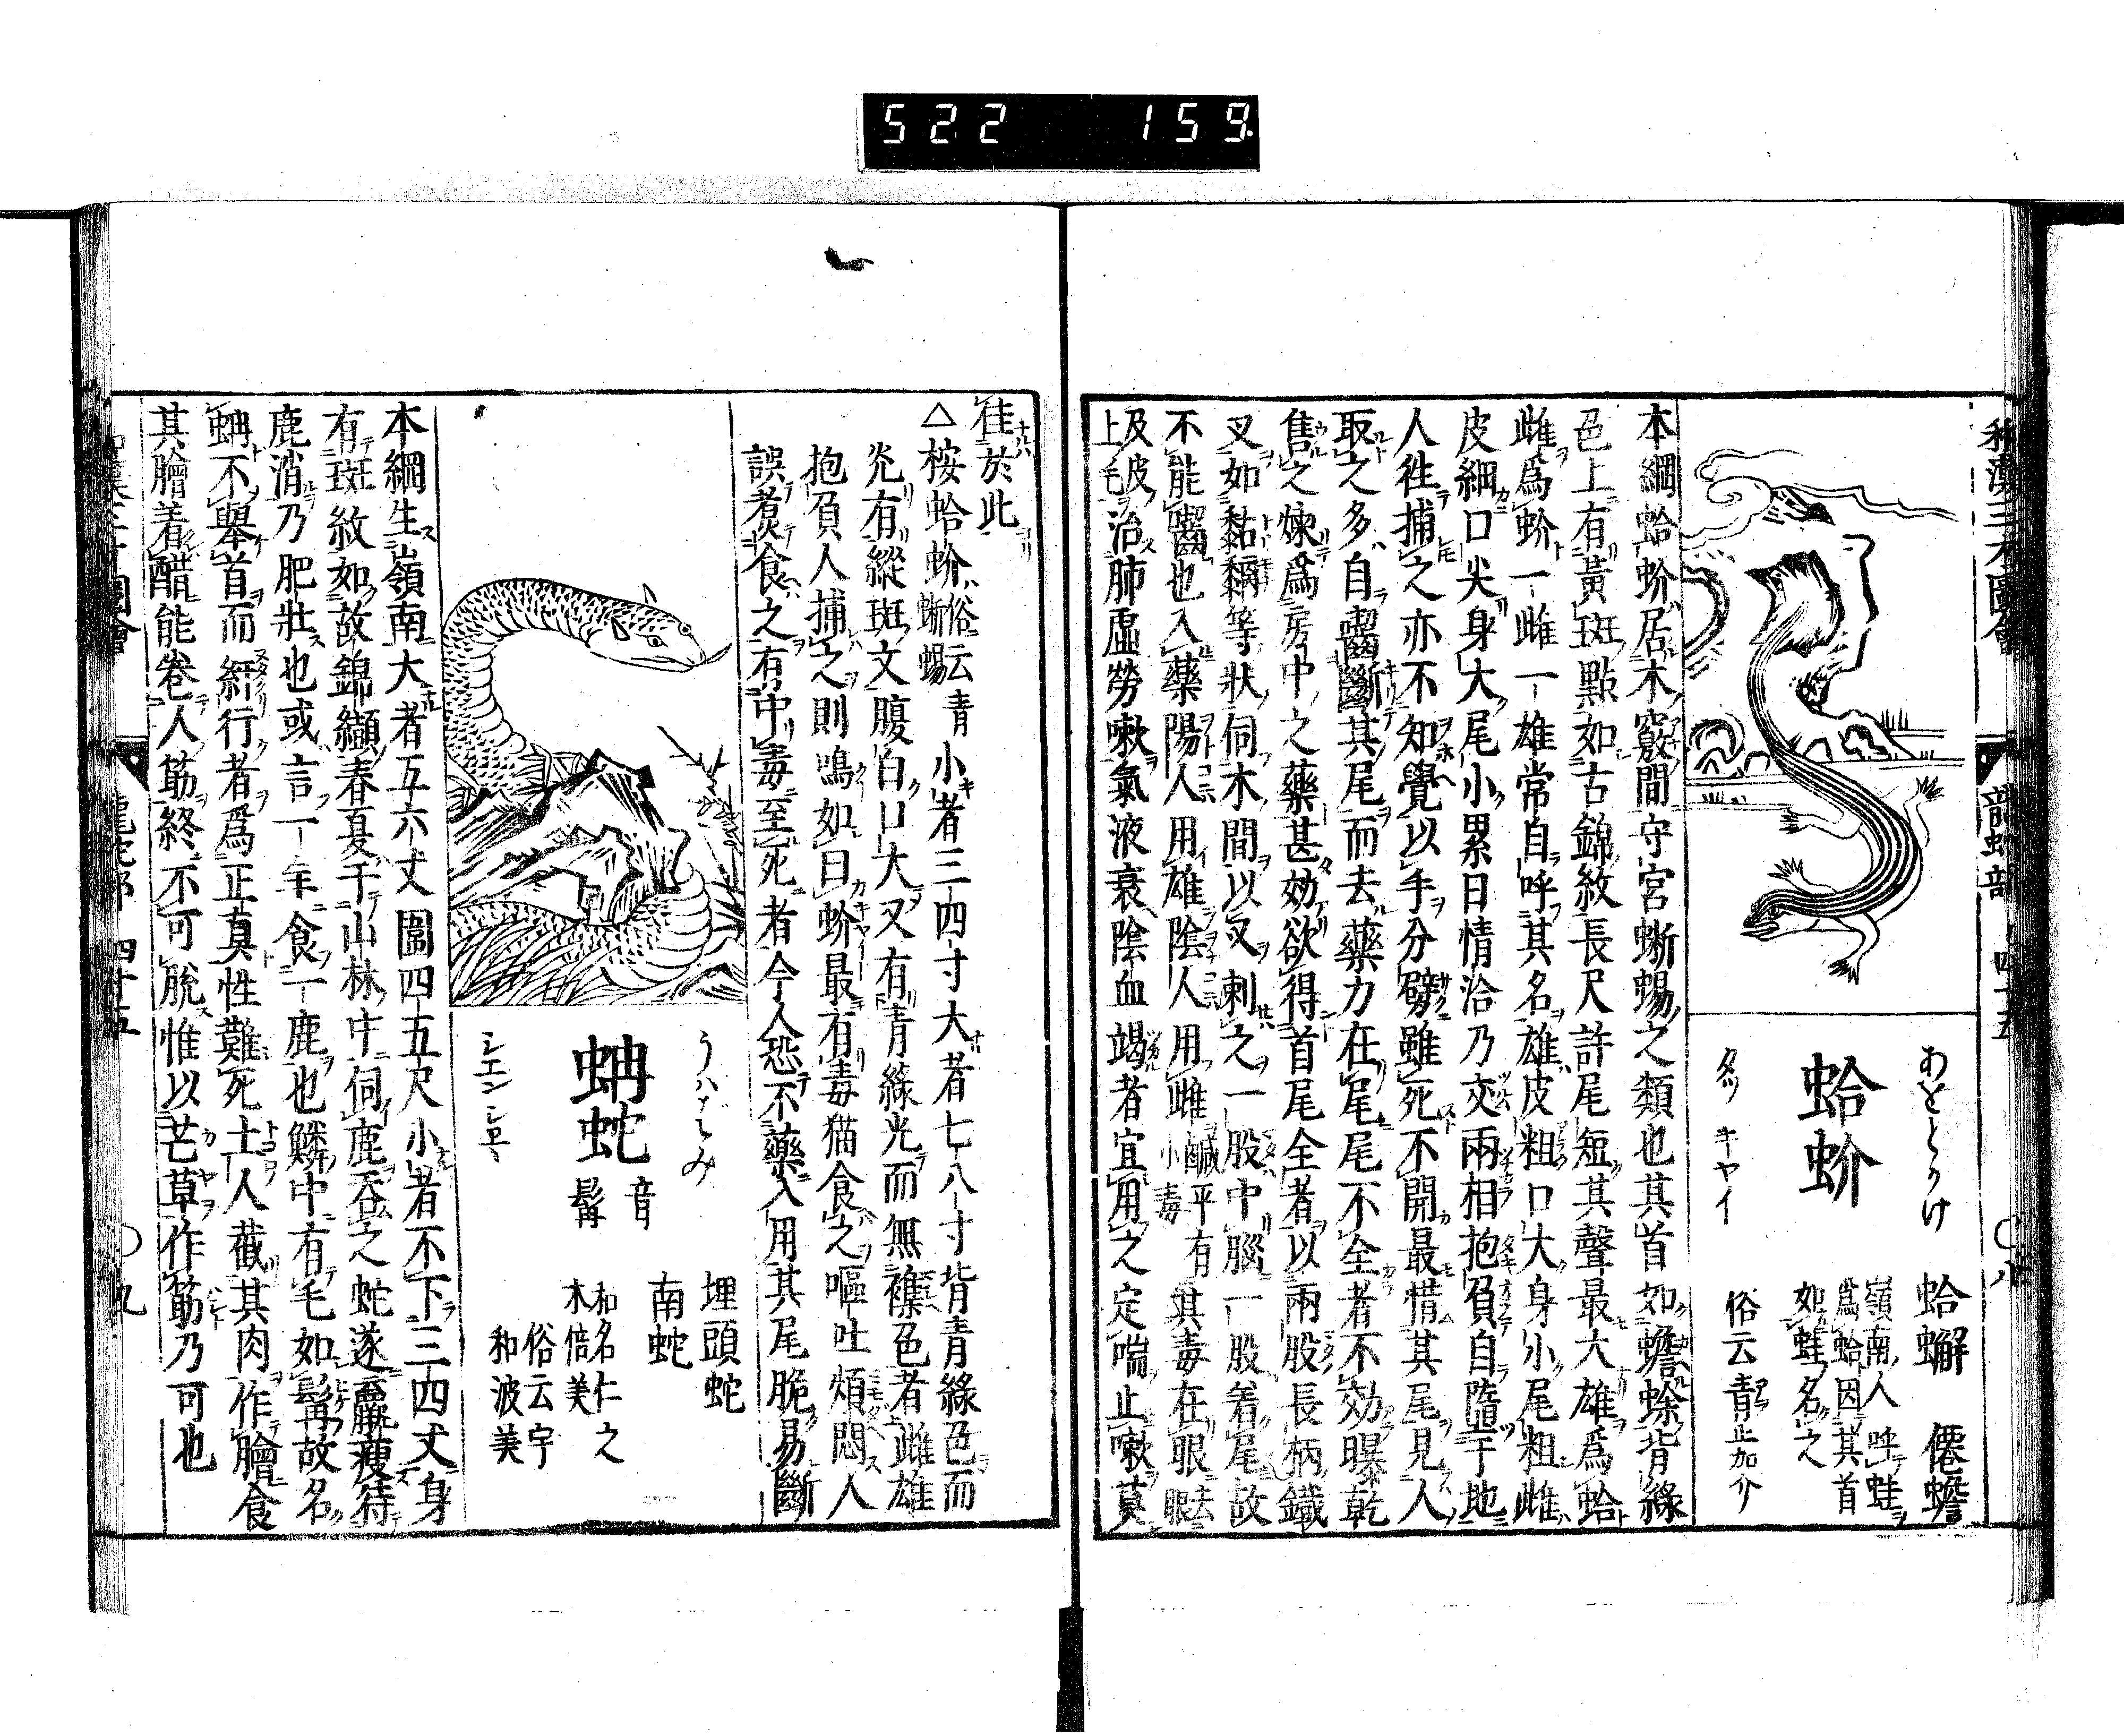 522 159
和漢三才圖會 龍蛇部 四十五 〇八
あをとかけ
蛤蚧
タツ キヤイ
蛤蠏 僊蟾
嶺南人呼蛙
爲蛤因其首
如蛙名之
俗云青止加介
本綱蛤蚧居木竅間守宮蜥蜴之類也其首如蟾蜍背綠
色上有黃斑點如古錦紋長尺許尾短其聲最大雄爲蛤
雌爲蚧一雌一雄常自呼其名雄皮粗口大身小尾粗雌
皮細口尖身大尾小累日情洽乃交兩相抱負自墮于地
人徃捕之亦不知覺以手分劈雖死不開最惜其尾見人
取之多自齧斷其尾而去藥力在尾尾不全者不効曝乾
售之煉爲房中之藥甚効欲得首尾全者以兩股長柄鐵
叉如黏黐等狀伺木間以叉刺之一股中腦一股着尾故
不能齧也入藥陽人用雄陰人用雌鹹平有小毒其毒在眼去眼
及皮上毛治肺虛勞嗽氣液衰陰血竭者宜用之定喘止嗽莫
佳於此
△桉蛤蚧俗云青蜥蜴小者三四寸大者七八寸背青綠色而
光有縱斑文腹白口大又有青綠光而無襍色者雌雄
抱負人捕之則鳴如曰蛤蚧最有毒猫食之嘔吐煩悶人
誤煑食之有中毒至死者今人恐不藥入用其尾脆易斷
うハばみ
蚺蛇 音髯
シエン シヱヽ
埋頭蛇
南蛇
和名仁之
木倍美
俗云宇
和波美
本綱生嶺南大者五六丈圍四五尺小者不下三四丈身
有斑紋如故錦纈春夏于山林中伺鹿吞之蛇遂羸瘦待
鹿消乃肥壯也或言一年食一鹿也鱗中有毛如髯故名
蚺不舉首而紆行者爲正真性難死士人截其肉作膾食
其膽着醋能卷人筯終不可脫惟以芒草作筯乃可也
和漢三才圖會 龍蛇部 四十五 〇九